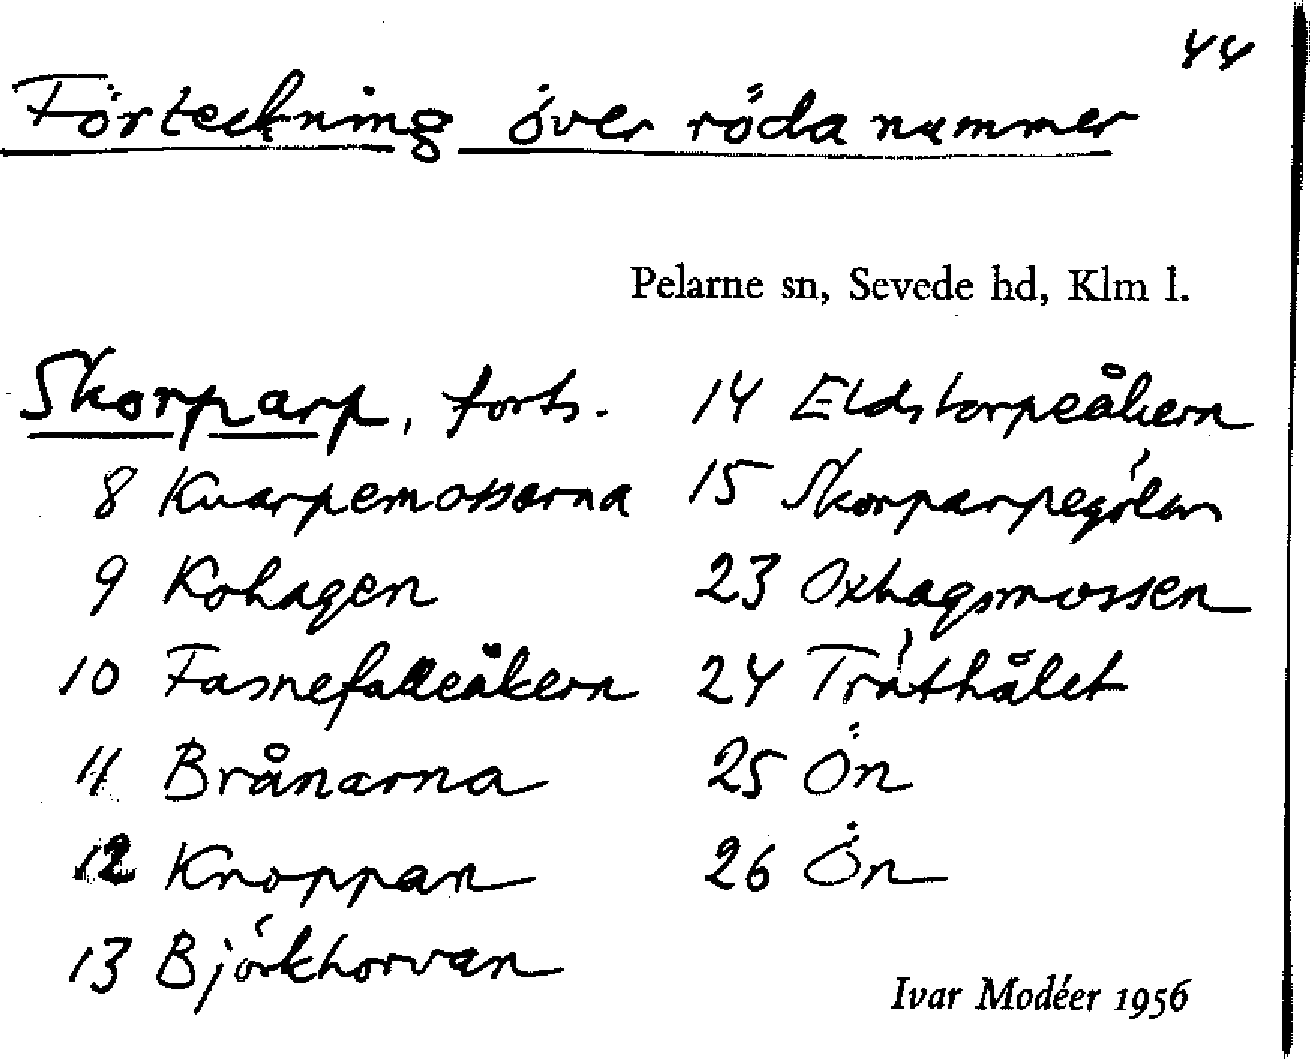 44
Förteckning över röda nummer
Pelarne sn, Sevede hd, Klm l.
Skorparp, forts.
8 Kvarpemossarna
9 Kohagen
10 Fasnefalleåkern
11 Brånarna
12 Knoppan
13 Björkhorvan
14 Eldstorpeåkern
15 Skorparpegölen
23 Oxhagsmossen
24 Tråthålet
25 Ön
26 Ön
Ivar Modéer 1956